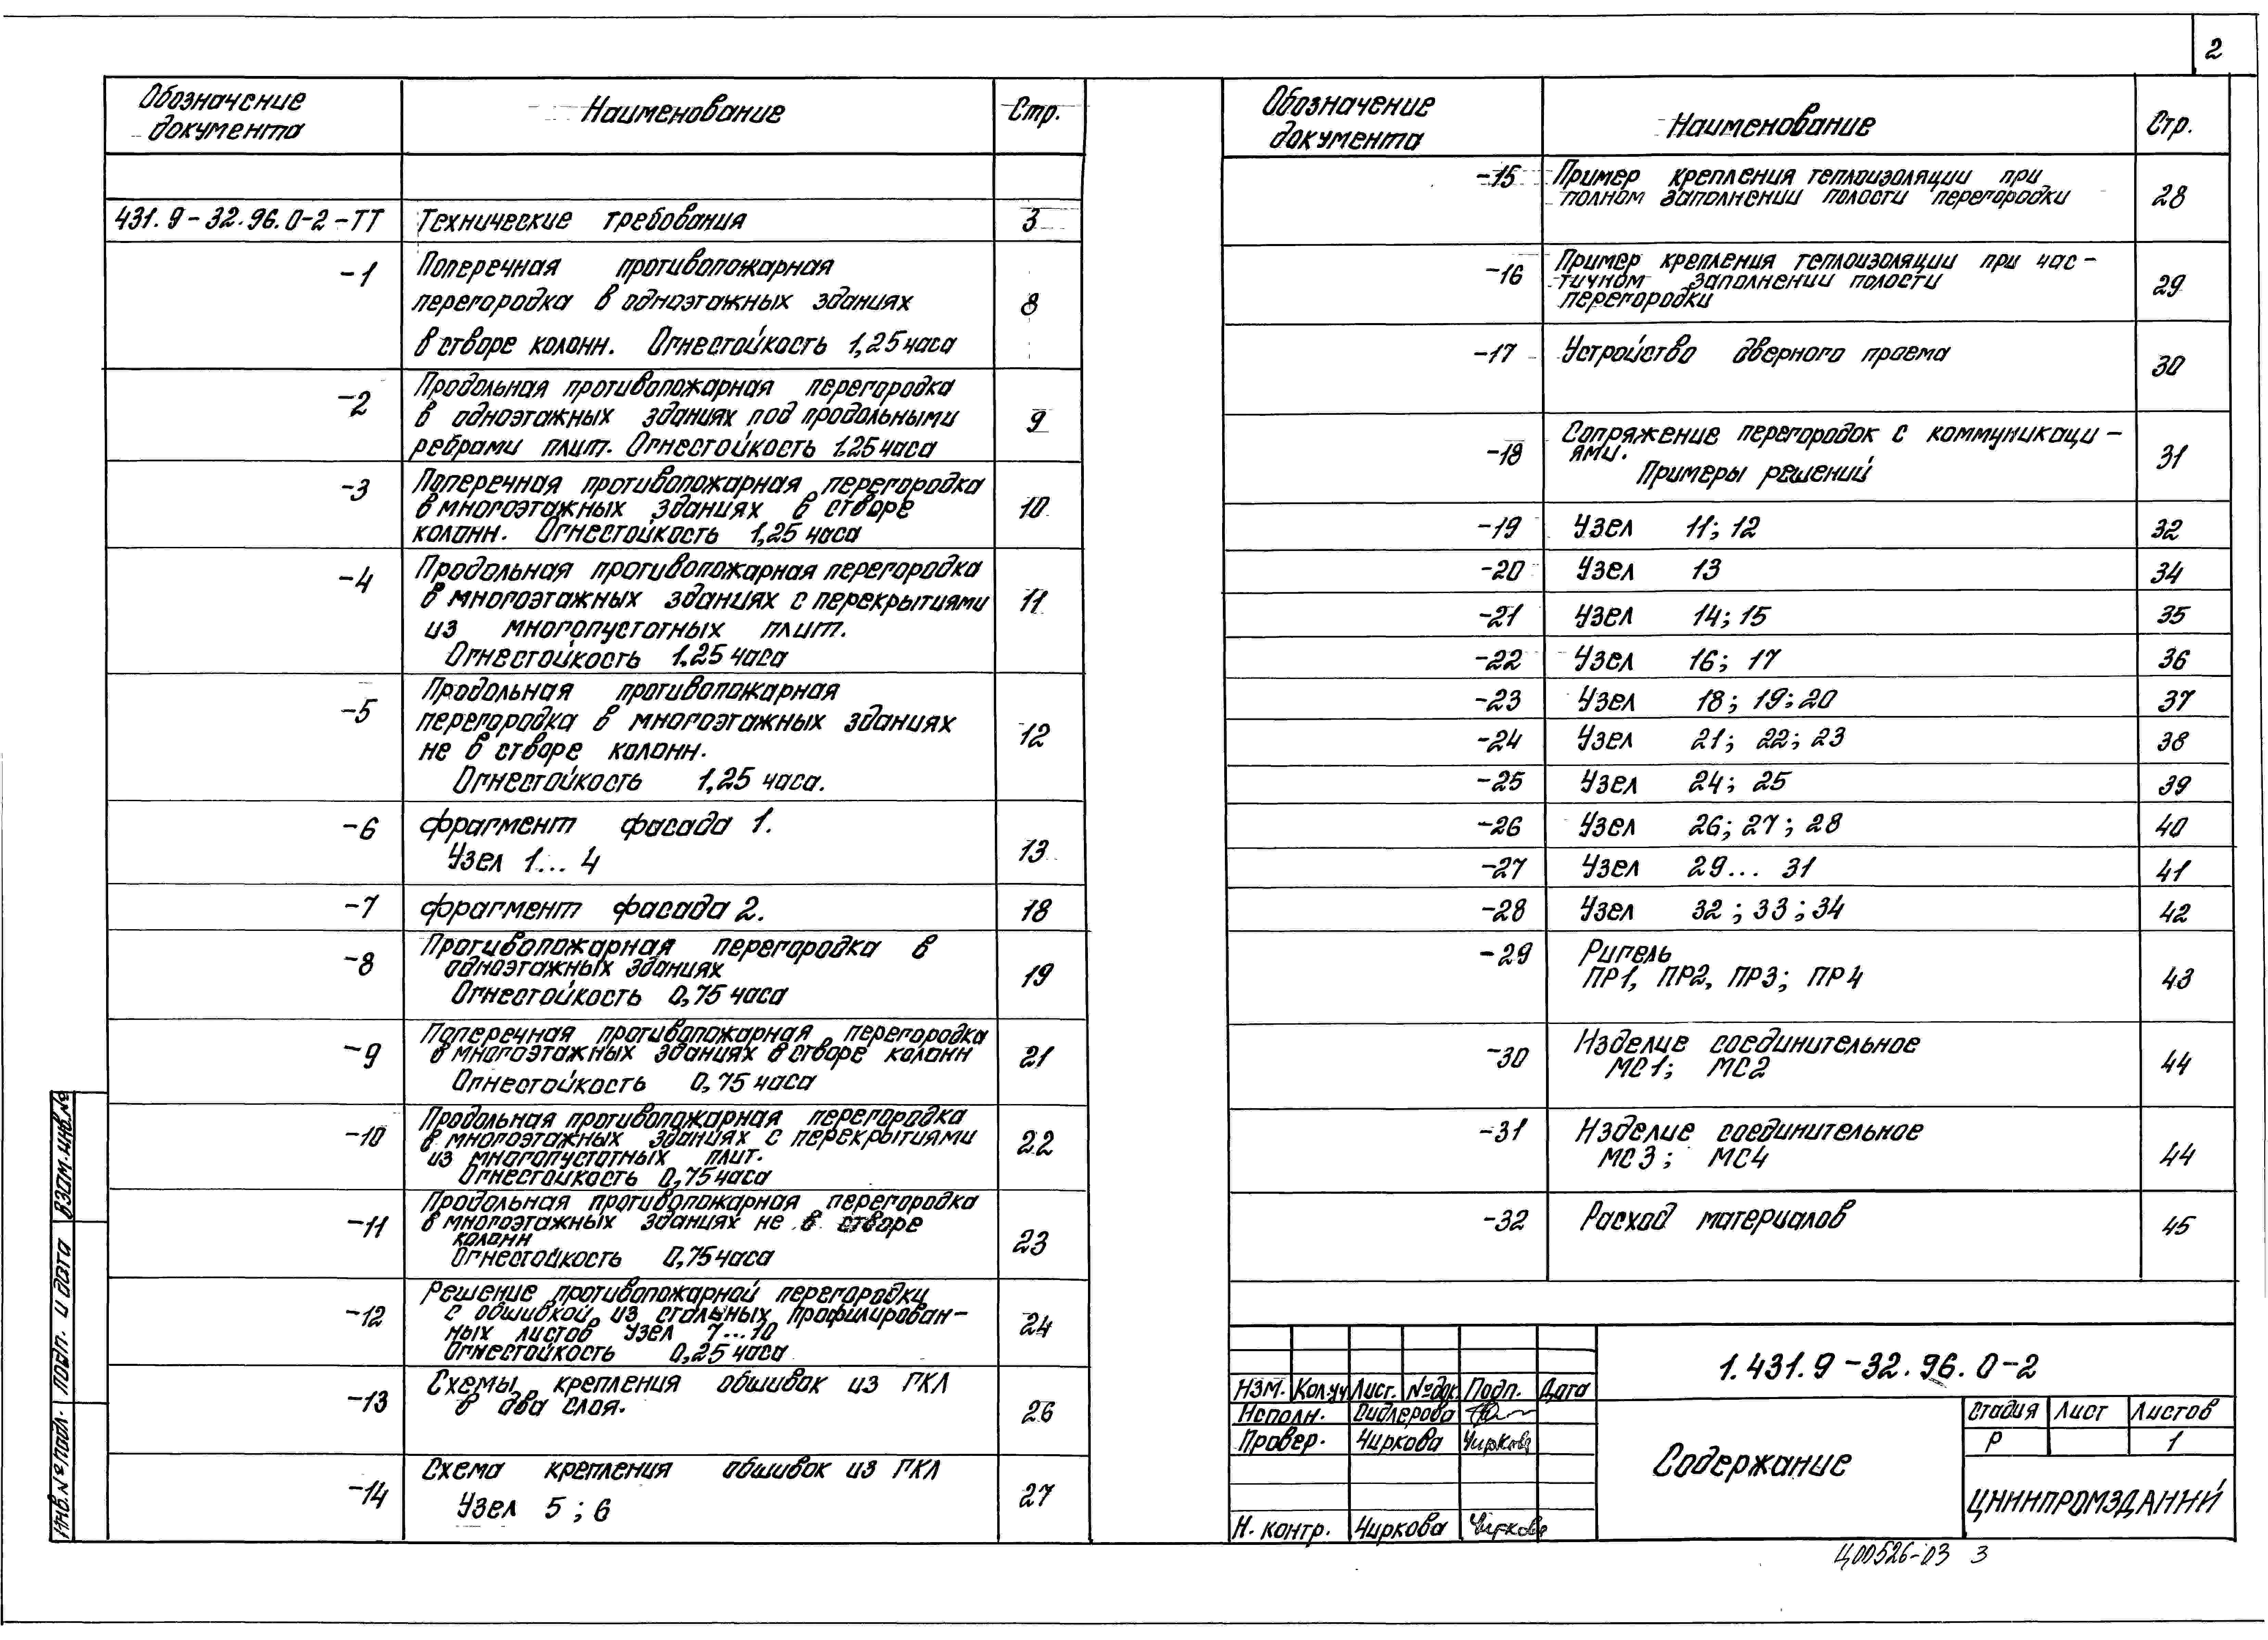 2
Обозначение
документа
Наименование
Стр.
431.9-32.96.0-2-ТТ Технические требования 3
-1 Поперечная противопожарная
перегородка в одноэтажных зданиях 8
в створе колонн. Огнестойкость 1,25 часа
-2 Продольная противопожарная перегородка
в одноэтажных зданиях под продольными 9
ребрами плит. Огнестойкость 1.25 часа
-3 Поперечная противопожарная перегородка
в многоэтажных зданиях в створе 10
колонн. Огнестойкость 1,25 часа
-4 Продольная противопожарная перегородка
в многоэтажных зданиях с перекрытиями 11
из многопустотных плит.
Огнестойкость 1.25 часа
-5 Продольная противопожарная
перегородка в многоэтажных зданиях 12
не в створе колонн.
Огнестойкость 1,25 часа.
-6 Фрагмент фасада 1.
Узел 1... 4 13
-7 Фрагмент фасада 2. 18
-8 Противопожарная перегородка в
одноэтажных зданиях 19
Огнестойкость 0,75 часа
-9 Поперечная противопожарная перегородка
в многоэтажных зданиях в створе колонн 21
Огнестойкость 0,75 часа
-10 Продольная противопожарная перегородка
в многоэтажных зданиях с перекрытиями 22
из многопустотных плит.
Огнестойкость 0,75 часа
-11 Продольная противопожарная перегородка
в многоэтажных зданиях не в створе
колонн 23
Огнестойкость 0,75 часа
-12 Решение противопожарной перегородки
с обшивкой из стальных профилирован-
ных листов Узел 7...10 24
Огнестойкость 0,25 часа
-13 Схемы крепления обшивок из ГКЛ
в два слоя. 26
-14 Схема крепления обшивок из ГКЛ
Узел 5; 6 27
Обозначение
документа
Наименование
Стр.
-15 Пример крепления теплоизоляции при
полном заполнении полости перегородки 28
-16 Пример крепления теплоизоляции при час-
тичном заполнении полости 29
перегородки
-17 Устройство дверного проема 30
-18 Сопряжение перегородок с коммуникаци-
ями. 31
Примеры решений
-19 Узел 11; 12 32
-20 Узел 13 34
-21 Узел 14; 15 35
-22 Узел 16; 17 36
-23 Узел 18; 19; 20 37
-24 Узел 21; 22; 23 38
-25 Узел 24; 25 39
-26 Узел 26; 27; 28 40
-27 Узел 29... 31 41
-28 Узел 32; 33; 34 42
-29 Ригель
ПР1, ПР2, ПР3; ПР4 43
-30 Изделие соединительное
МС1; МС2 44
-31 Изделие соединительное
МС3; МС4 44
-32 Расход материалов 45
1.431.9-32.96.0-2
Изм. Кол.уч Лист. №док. Подп. Дата
Исполн. Сидлерова
Провер. Чиркова Чиркова
Н. контр. Чиркова Чиркова
Содержание
Стадия Лист Листов
Р 1
ЦНИИПРОМЗДАНИЙ
Ц00526-03 3
Инв.№ подл. Подп. и дата Взам.инв.№